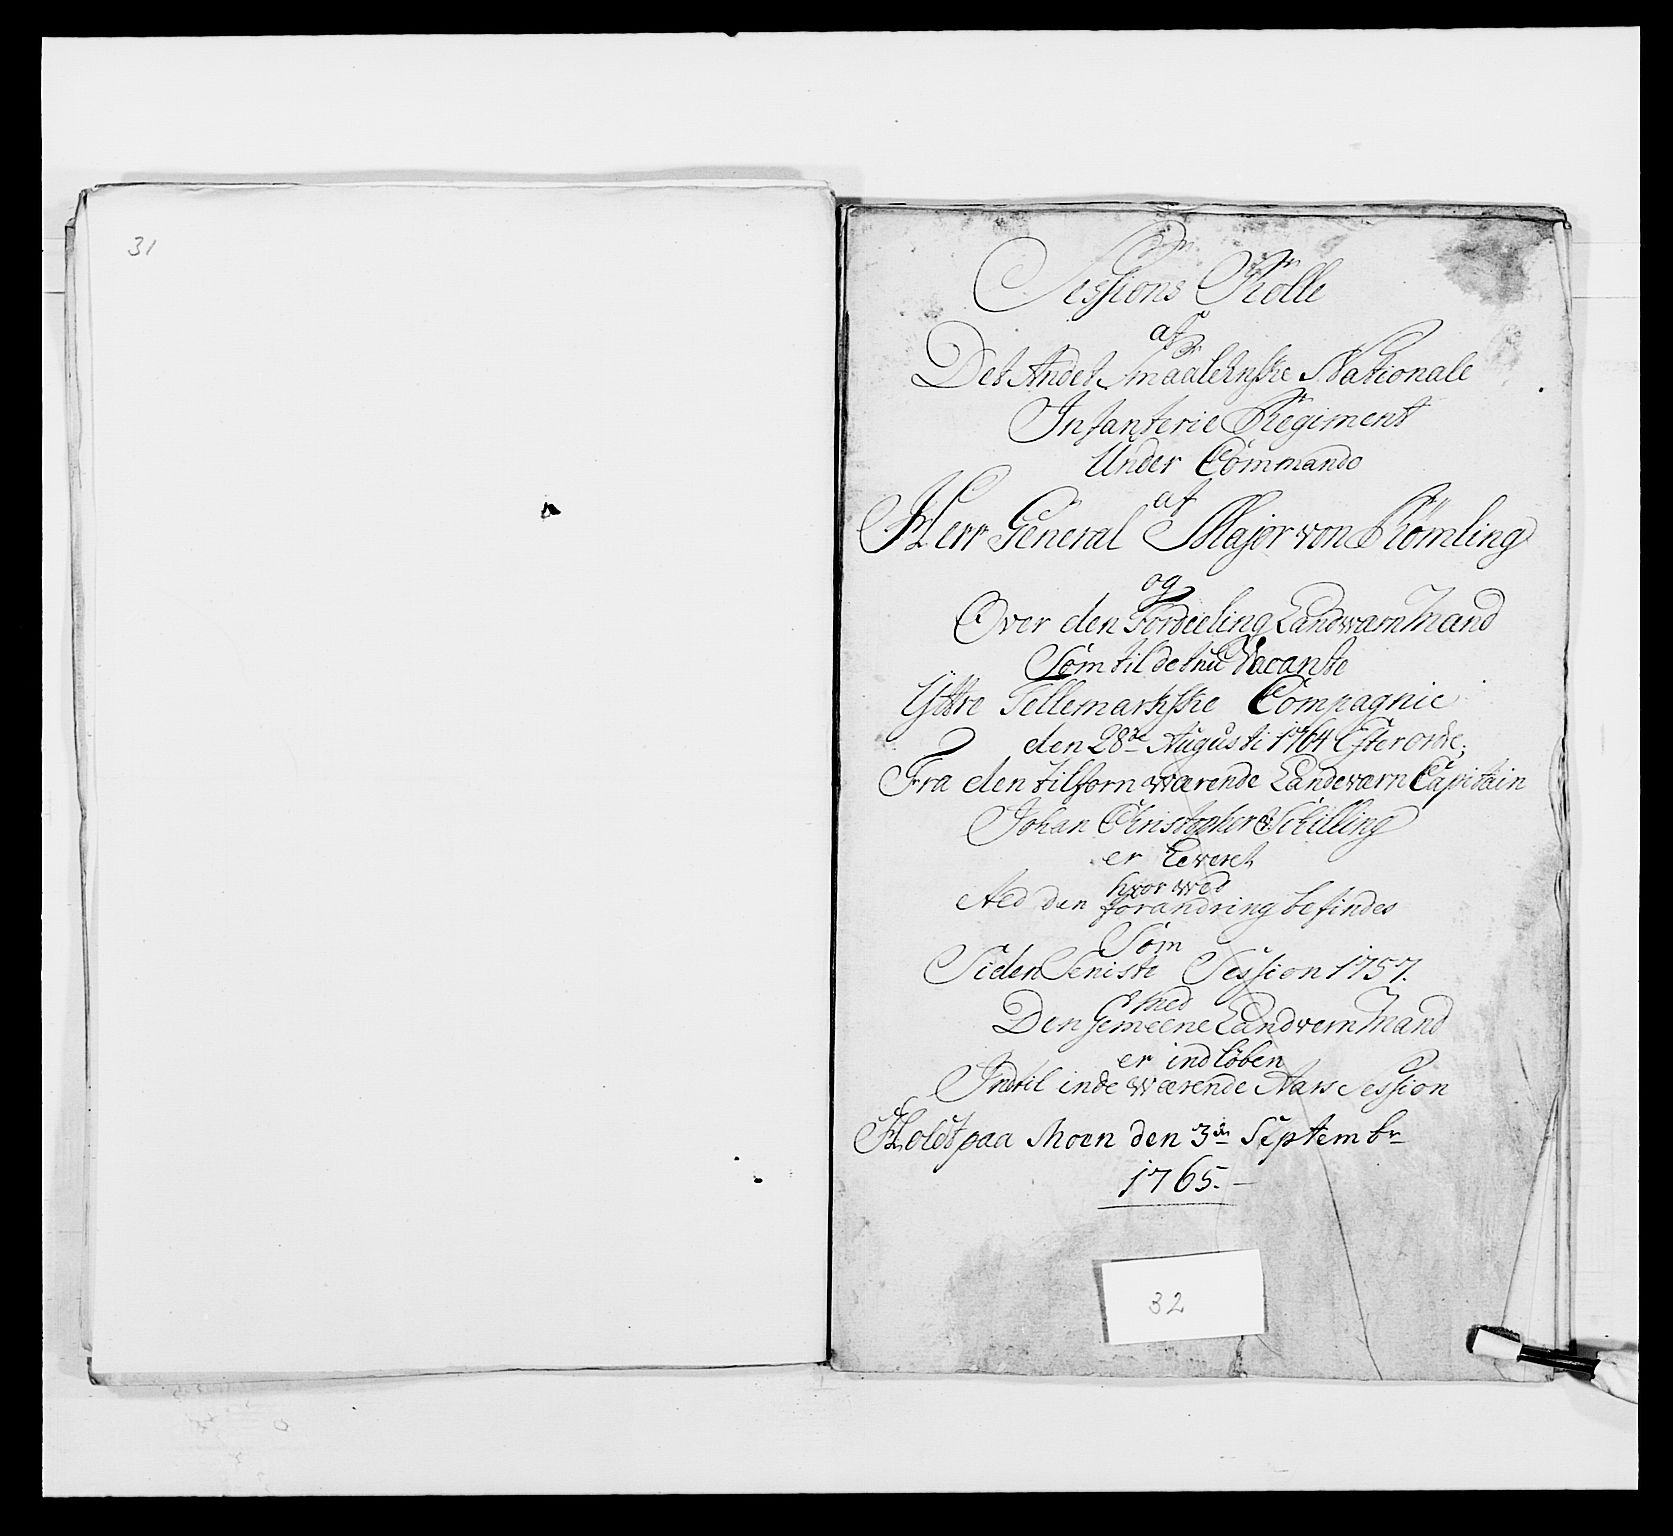 31
Sessions Rolle
af
Det Andet Smaalehnske Nationale
Infanterie Regiment
Under Commando
af
Herr General Major von Rømling
og
Over den Fordeeling Landwærn Mand
Som til det nu Vacante
Yttre Tellemarkske Compagnie
den 28de Augusti 1764 Efter orde;
Fra den tilforn wærende Landeværn Capitain
Johan Christopher Schilling
er Leveret
hvor wed
Aed den forandring befindes
Som
Siden Seniste Session 1757.
med
Den Gemeene Landvern Mand
er indløben
Indtil inde wærende Aars Session
Holdt paa Moen den 3de Septembr
1765.
32